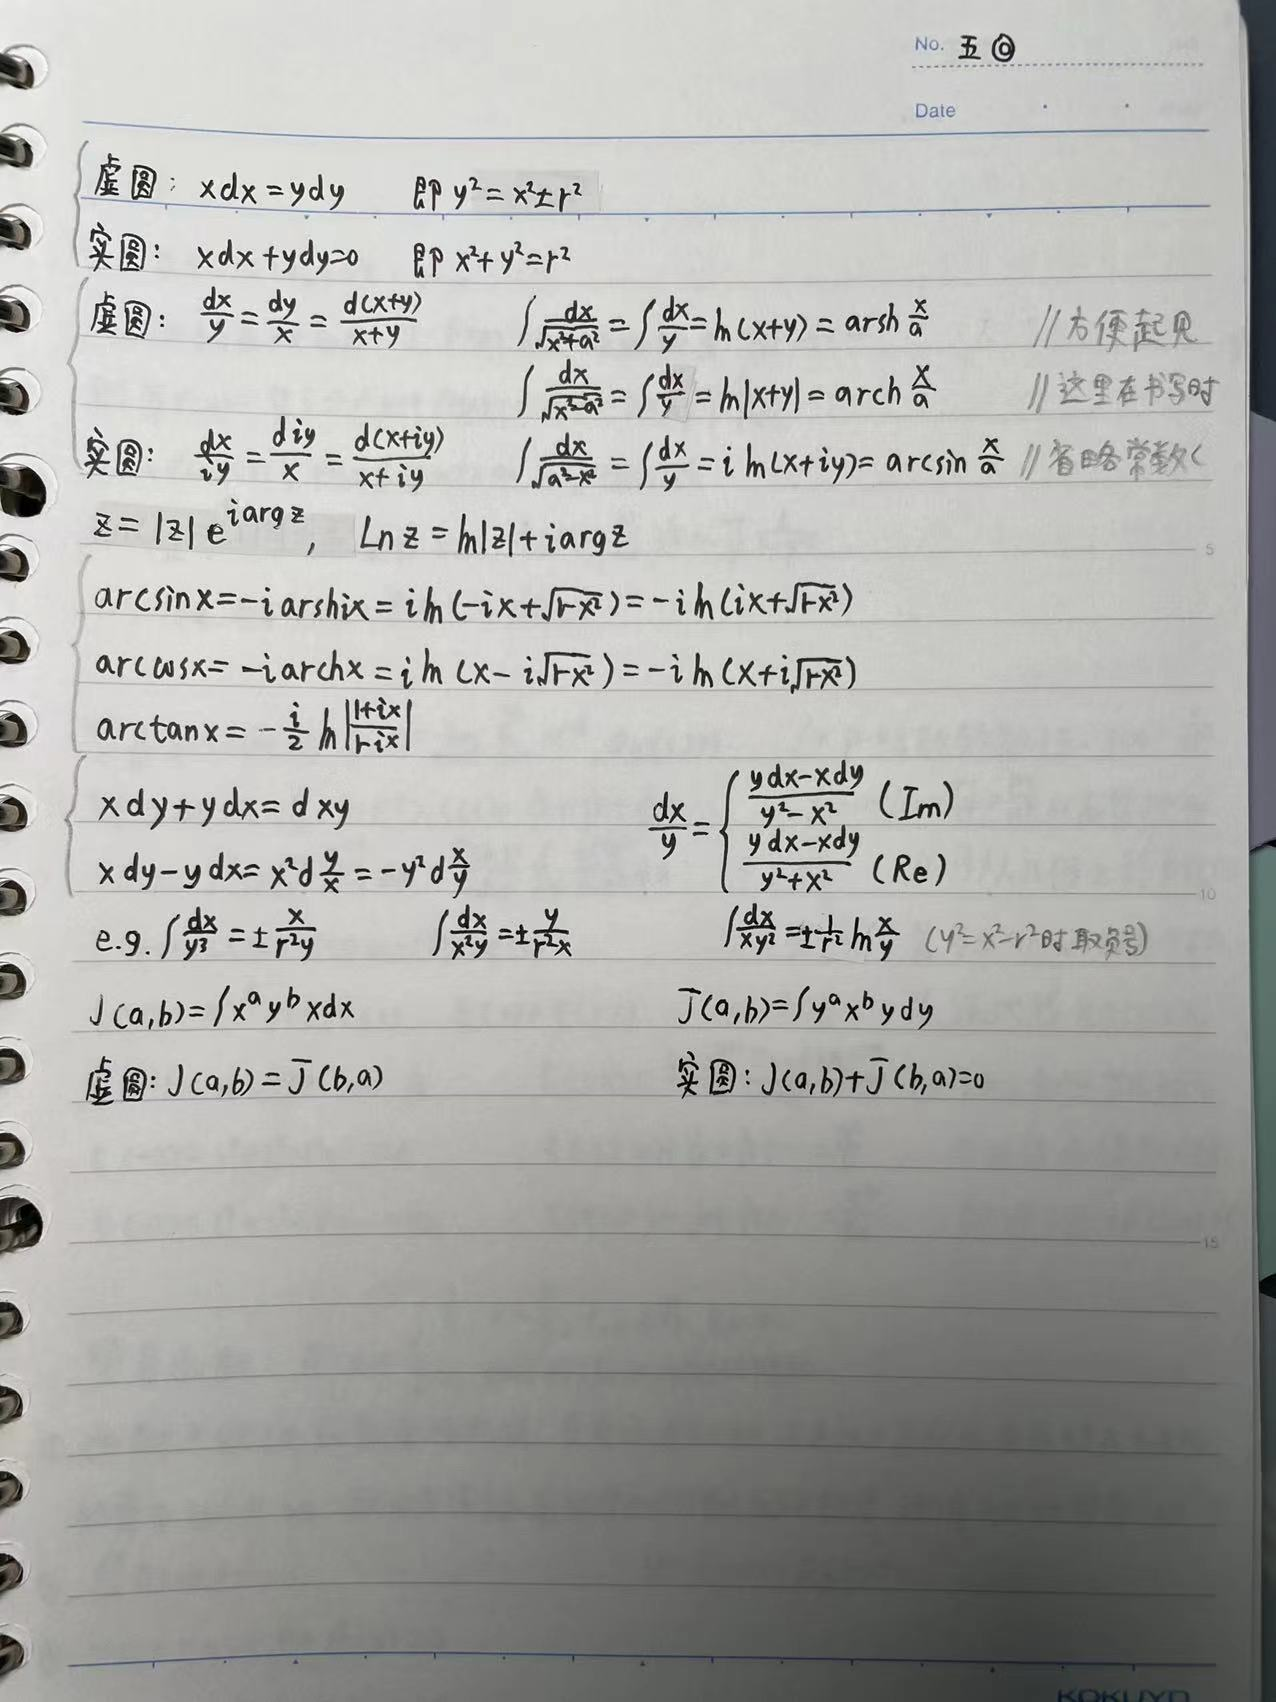 No. 五 ⓪
Date
虚圆: xdx=ydy 即 y²=x²±r²
实圆: xdx+ydy=0 即 x²+y²=r²
虚圆: dx/y = dy/x = d(x+y)/(x+y) ∫dx/√(x²+a²) = ∫dx/y = ln(x+y) = arsh x/a //方便起见
∫dx/√(x²-a²) = ∫dx/y = ln|x+y| = arch x/a //这里在书写时
实圆: dx/iy = diy/x = d(x+iy)/(x+iy) ∫dx/√(a²-x²) = ∫dx/y = i ln(x+iy) = arcsin x/a //省略常数C
z=|z|e^{i arg z}, Ln z = ln|z|+i arg z
arcsin x = -i arsh ix = i ln(-ix+√(1-x²)) = -i ln(ix+√(1-x²))
arccos x = -i arch x = i ln(x-i√(1-x²)) = -i ln(x+i√(1-x²))
arctan x = -i/2 ln|(1+ix)/(1-ix)|
xdy+ydx=dxy dx/y = { (ydx-xdy)/(y²-x²) (Im)
xdy-ydx=x²d y/x = -y²d x/y (ydx-xdy)/(y²+x²) (Re)
e.g. ∫dx/y³ = ± x/r²y ∫dx/x²y = ± y/r²x ∫dx/xy² = ± 1/r² ln x/y (y²=x²-r²时取负号)
J(a,b)=∫x^a y^b xdx J̄(a,b)=∫y^a x^b ydy
虚圆: J(a,b)=J̄(b,a) 实圆: J(a,b)+J̄(b,a)=0
5
10
15
KOKUYO